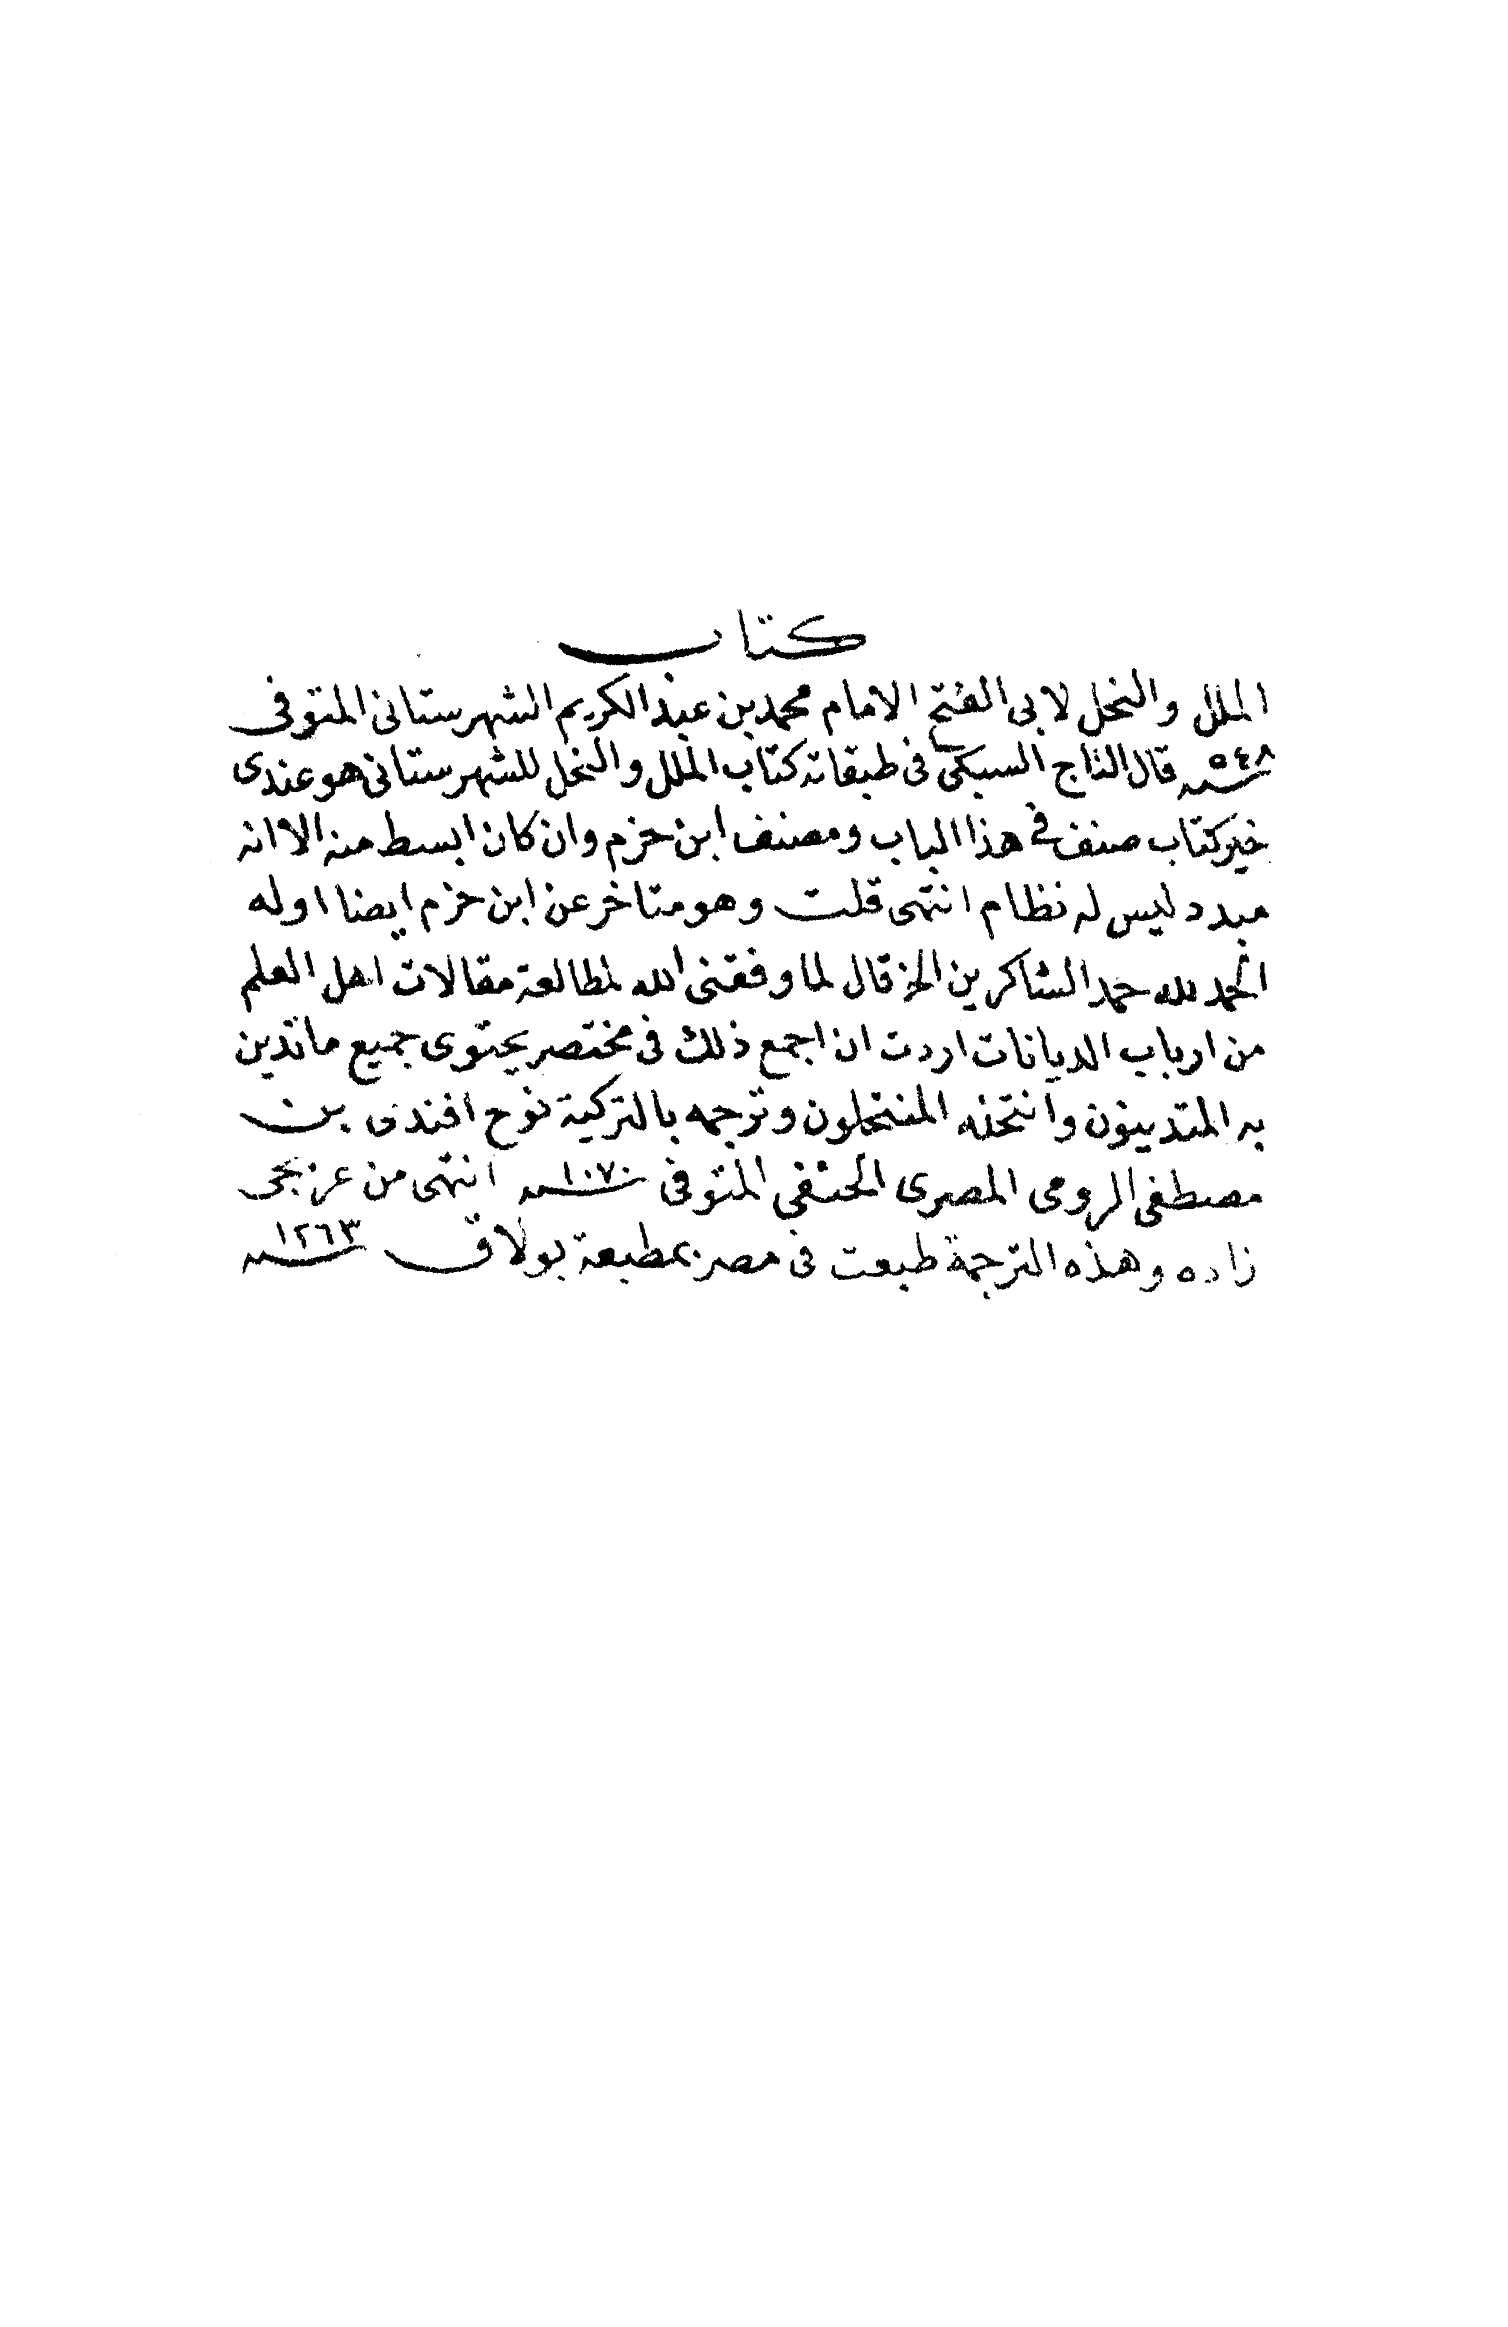 كتاب
الملل والنحل لابى الفتح الامام محمد بن عبد الكريم الشهرستانى المتوفى
سنه ٥٤٨ قال التاج السبكى فى طبقاته كتاب الملل والنحل للشهرستانى هو عندى
خير كتاب صنف فى هذا الباب ومصنف ابن حزم وان كان ابسط منه الا انه
مبدد ليس له نظام انتهى قلت وهو متاخر عن ابن حزم ايضا اوله
الحمد لله حمد الشاكرين الخ قال لما وفقنى الله لمطالعة مقالات اهل العلم
من ارباب الديانات اردت ان اجمع ذلك فى مختصر يحتوى جميع ماتدين
به المتدينون وانتحله المنتحلون وترجمه بالتركية نوح افندى بن
مصطفى الرومى المصرى الحنفى المتوفى سنه ١٠٧٠ انتهى من عربجى
زاده وهذه الترجمة طبعت فى مصر بمطبعة بولاق سنه ١٢٦٣